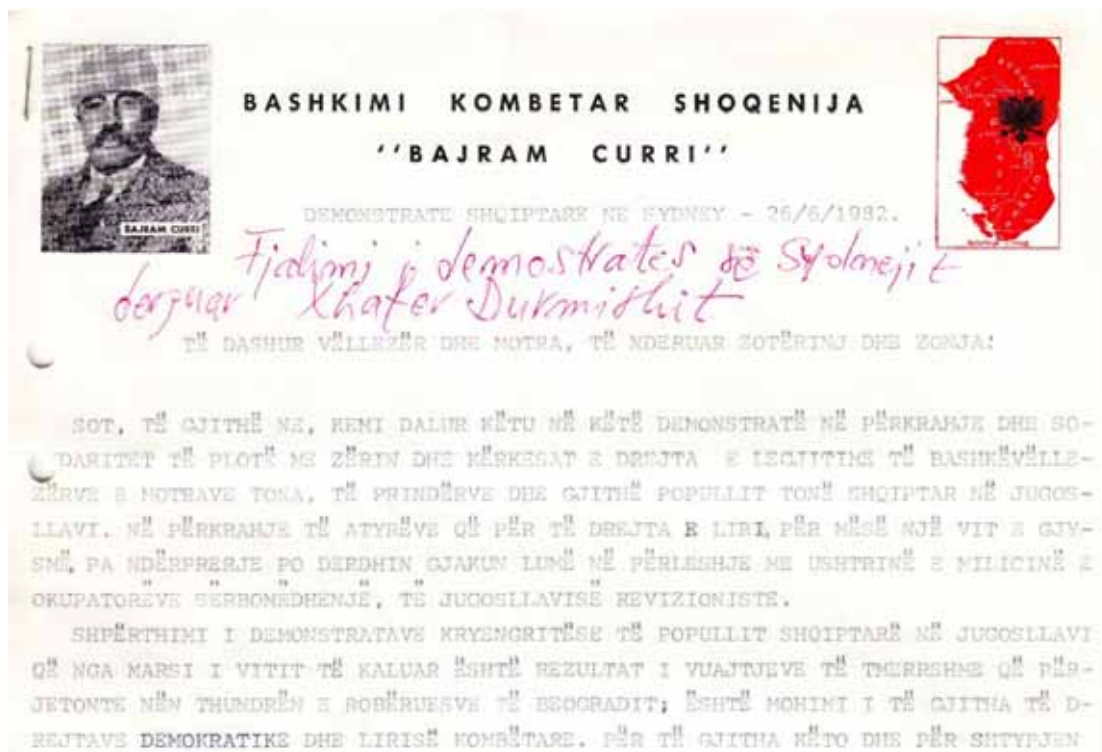 BASHKIMI KOMBETAR SHOQENIJA
''BAJRAM CURRI''
BAJRAM CURRI
DEMONSTRATE SHQIPTARE NE SYDNEY - 26/6/1982.
Fjalimi i demostrates së Sydnejit
derguar Xhafer Durmishit
TË DASHUR VËLLEZËR DHE MOTRA, TË NDERUAR ZOTËRINJ DHE ZONJA:
SOT, TË GJITHË NE, KEMI DALUR KËTU NË KËTË DEMONSTRATË NË PËRKRAHJE DHE SO-
DARITET TË PLOTË ME ZËRIN DHE KËRKESAT E DREJTA E LEGJITIME TË BASHKËVËLLE-
ZËRVE E MOTRAVE TONA, TË PRINDËRVE DHE GJITHË POPULLIT TONË SHQIPTAR NË JUGOS-
LLAVI. NË PËRKRAHJE TË ATYRËVE QË PËR TË DREJTA E LIRI, PËR MËSË NJË VIT E GJY-
SMË, PA NDËRPRERJE PO DERDHIN GJAKUN LUMË NË PËRLESHJE ME USHTRINË E MILICINË E
OKUPATORËVE SERBOMEDHENJË, TË JUGOSLLAVISË REVIZIONISTE.
SHPËRTHIMI I DEMONSTRATAVE KRYENGRITËSE TË POPULLIT SHQIPTARË NË JUGOSLLAVI
QË NGA MARSI I VITIT TË KALUAR ËSHTË REZULTAT I VUAJTJEVE TË TMERRSHME QË PËR-
JETONTE NËN THUNDRËN E ROBËRUESVE TË BEOGRADIT; ËSHTË MOHIMI I TË GJITHA TË D-
REJTAVE DEMOKRATIKE DHE LIRISË KOMBËTARE. PËR TË GJITHA KËTO DHE PËR SHTYPJEN